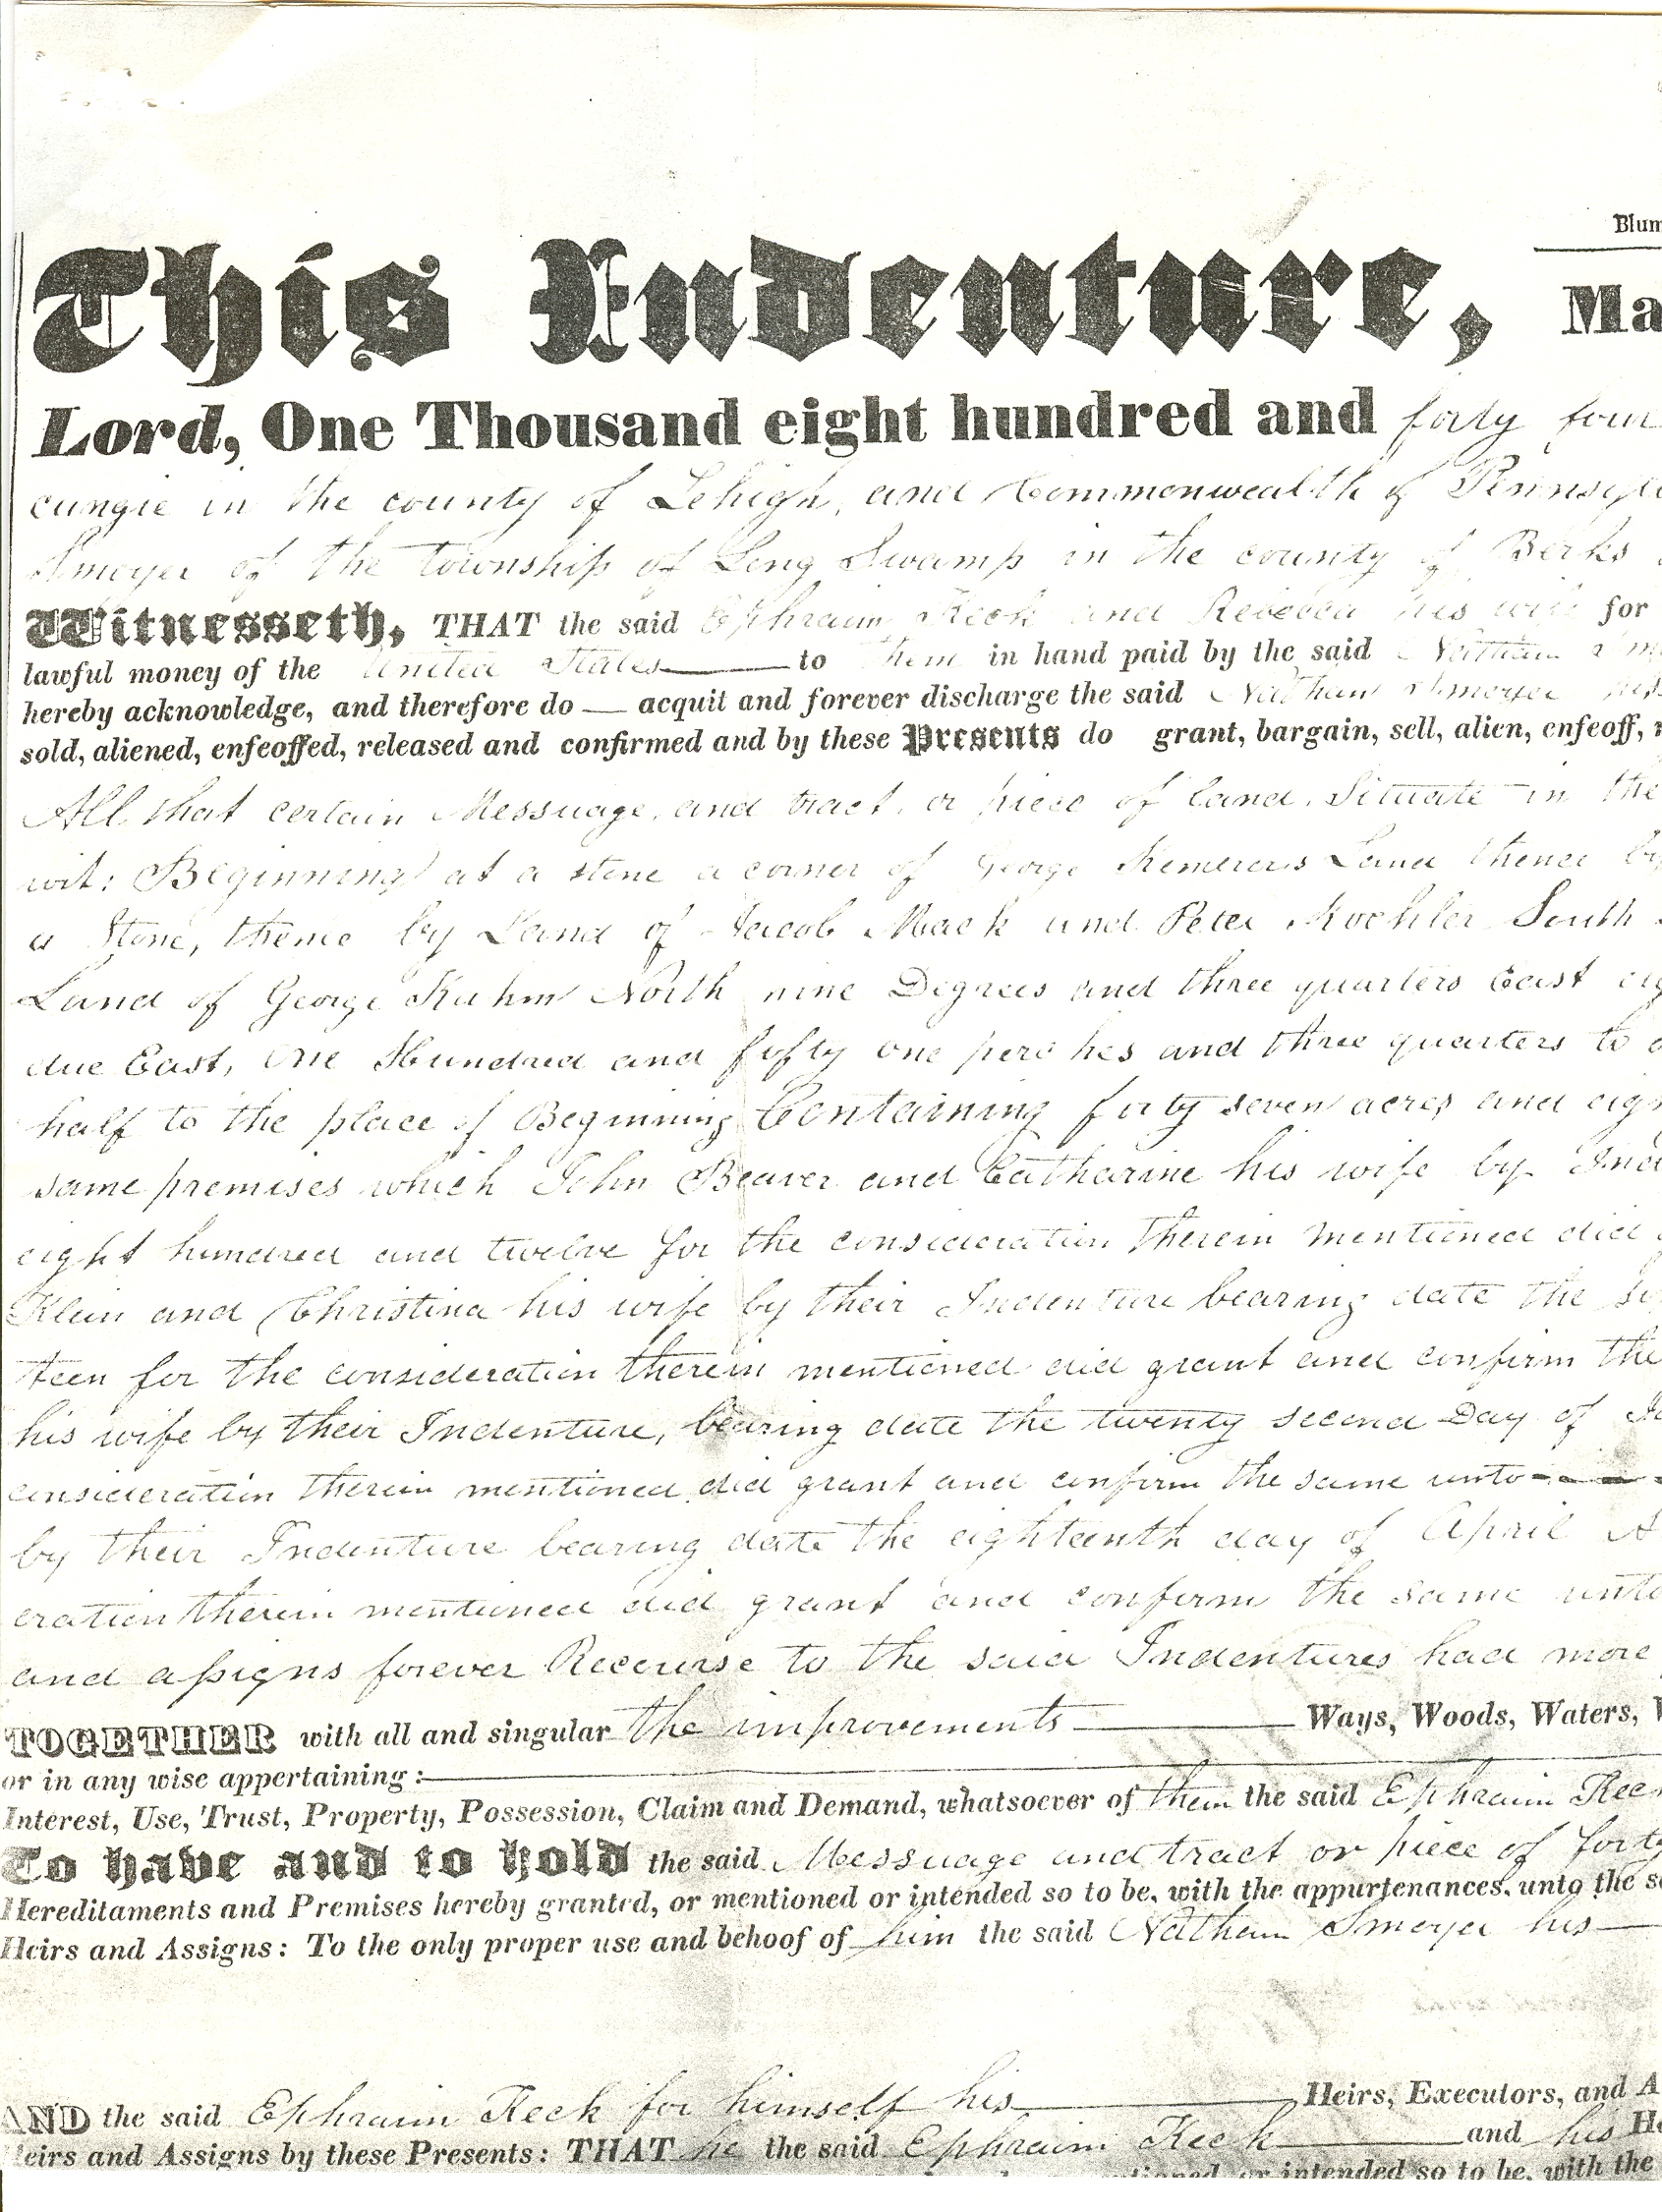 Blum
This Indenture, Ma
Lord, One Thousand eight hundred and forty four
cungie in the county of Lehigh, and Commonwealth of Pennsylv
Smoyer of the township of Long Swamp in the county of Berks
Witnesseth, THAT the said Ephraim Keck and Rebecca his wife for
lawful money of the United States to them in hand paid by the said Nathan Sm
hereby acknowledge, and therefore do — acquit and forever discharge the said Nathan Smoyer his
sold, aliened, enfeoffed, released and confirmed and by these Presents do grant, bargain, sell, alien, enfeoff, r
All that certain Messuage, and tract, or piece of land, Situate in the
wit: Beginning at a stone a corner of George Kemerers Land thence by
a Stone, thence by Land of Jacob Mack and Peter Kochler South
Land of George Kuhm North nine Degrees and three quarters East eig
due East, One Hundred and fifty one perches and three quarters to a
half to the place of Beginning Containing forty seven acres and eig
same premises which John Beaver and Catharine his wife by Ind
eight hundred and twelve for the consideration therein mentioned did
Klein and Christina his wife by their Indenture bearing date the
teen for the consideration therein mentioned did grant and confirm the
his wife by their Indenture, bearing date the twenty second Day of
consideration therein mentioned did grant and confirm the same unto
by their Indenture bearing date the eighteenth day of April A
eration therein mentioned did grant and confirm the same unto
and assigns forever Recourse to the said Indentures had more
TOGETHER with all and singular the improvements Ways, Woods, Waters, W
or in any wise appertaining:
Interest, Use, Trust, Property, Possession, Claim and Demand, whatsoever of them the said Ephraim Kec
To have and to hold the said Messuage and tract or piece of forty
Hereditaments and Premises hereby granted, or mentioned or intended so to be, with the appurtenances, unto the s
Heirs and Assigns: To the only proper use and behoof of him the said Nathan Smoyer his
AND the said Ephraim Keck for himself his Heirs, Executors, and A
eirs and Assigns by these Presents: THAT he the said Ephraim Keck and his He
tioned or intended so to be, with the